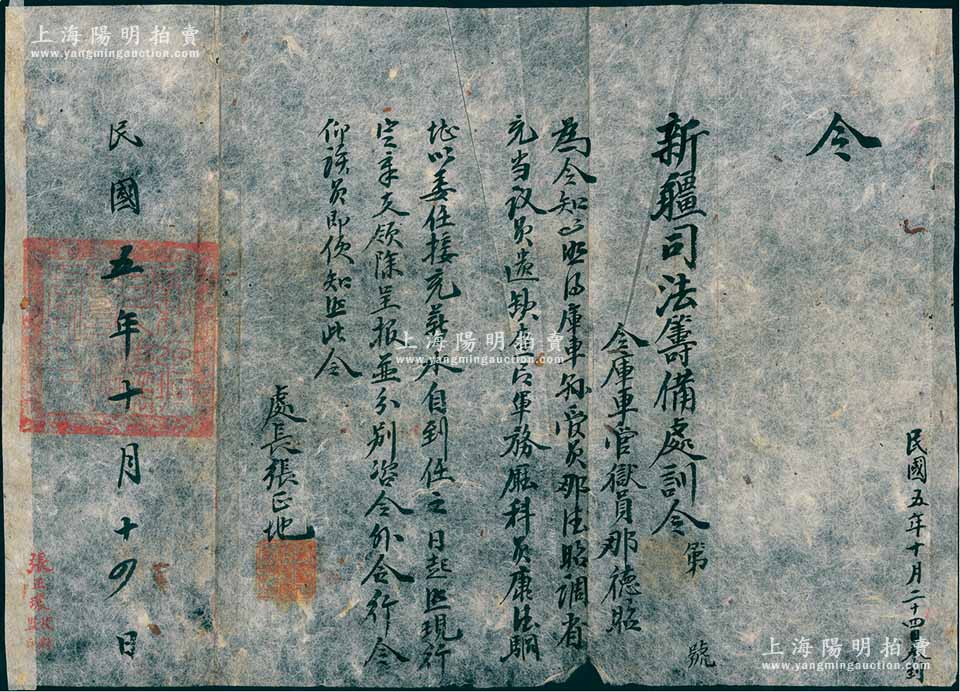 民國五年十月二十四日奉到
令
新疆司法籌備處訓令 第 號
令庫車管獄員那德昭
為令知事照得庫車縣管獄員那德昭調省
充当议員遺缺查有軍務廳科員康德駉
堪以委任接充薪水自到任之日起照現行
定章支領除呈报並分别咨令外合行令
仰該員即便知照此令
處長張正地
民國五年十月十四日
張正
上海陽明拍賣
www.yangmingauction.com
上海陽明拍賣
www.yangmingauction.com
上海陽明拍賣
www.yangmingauction.com